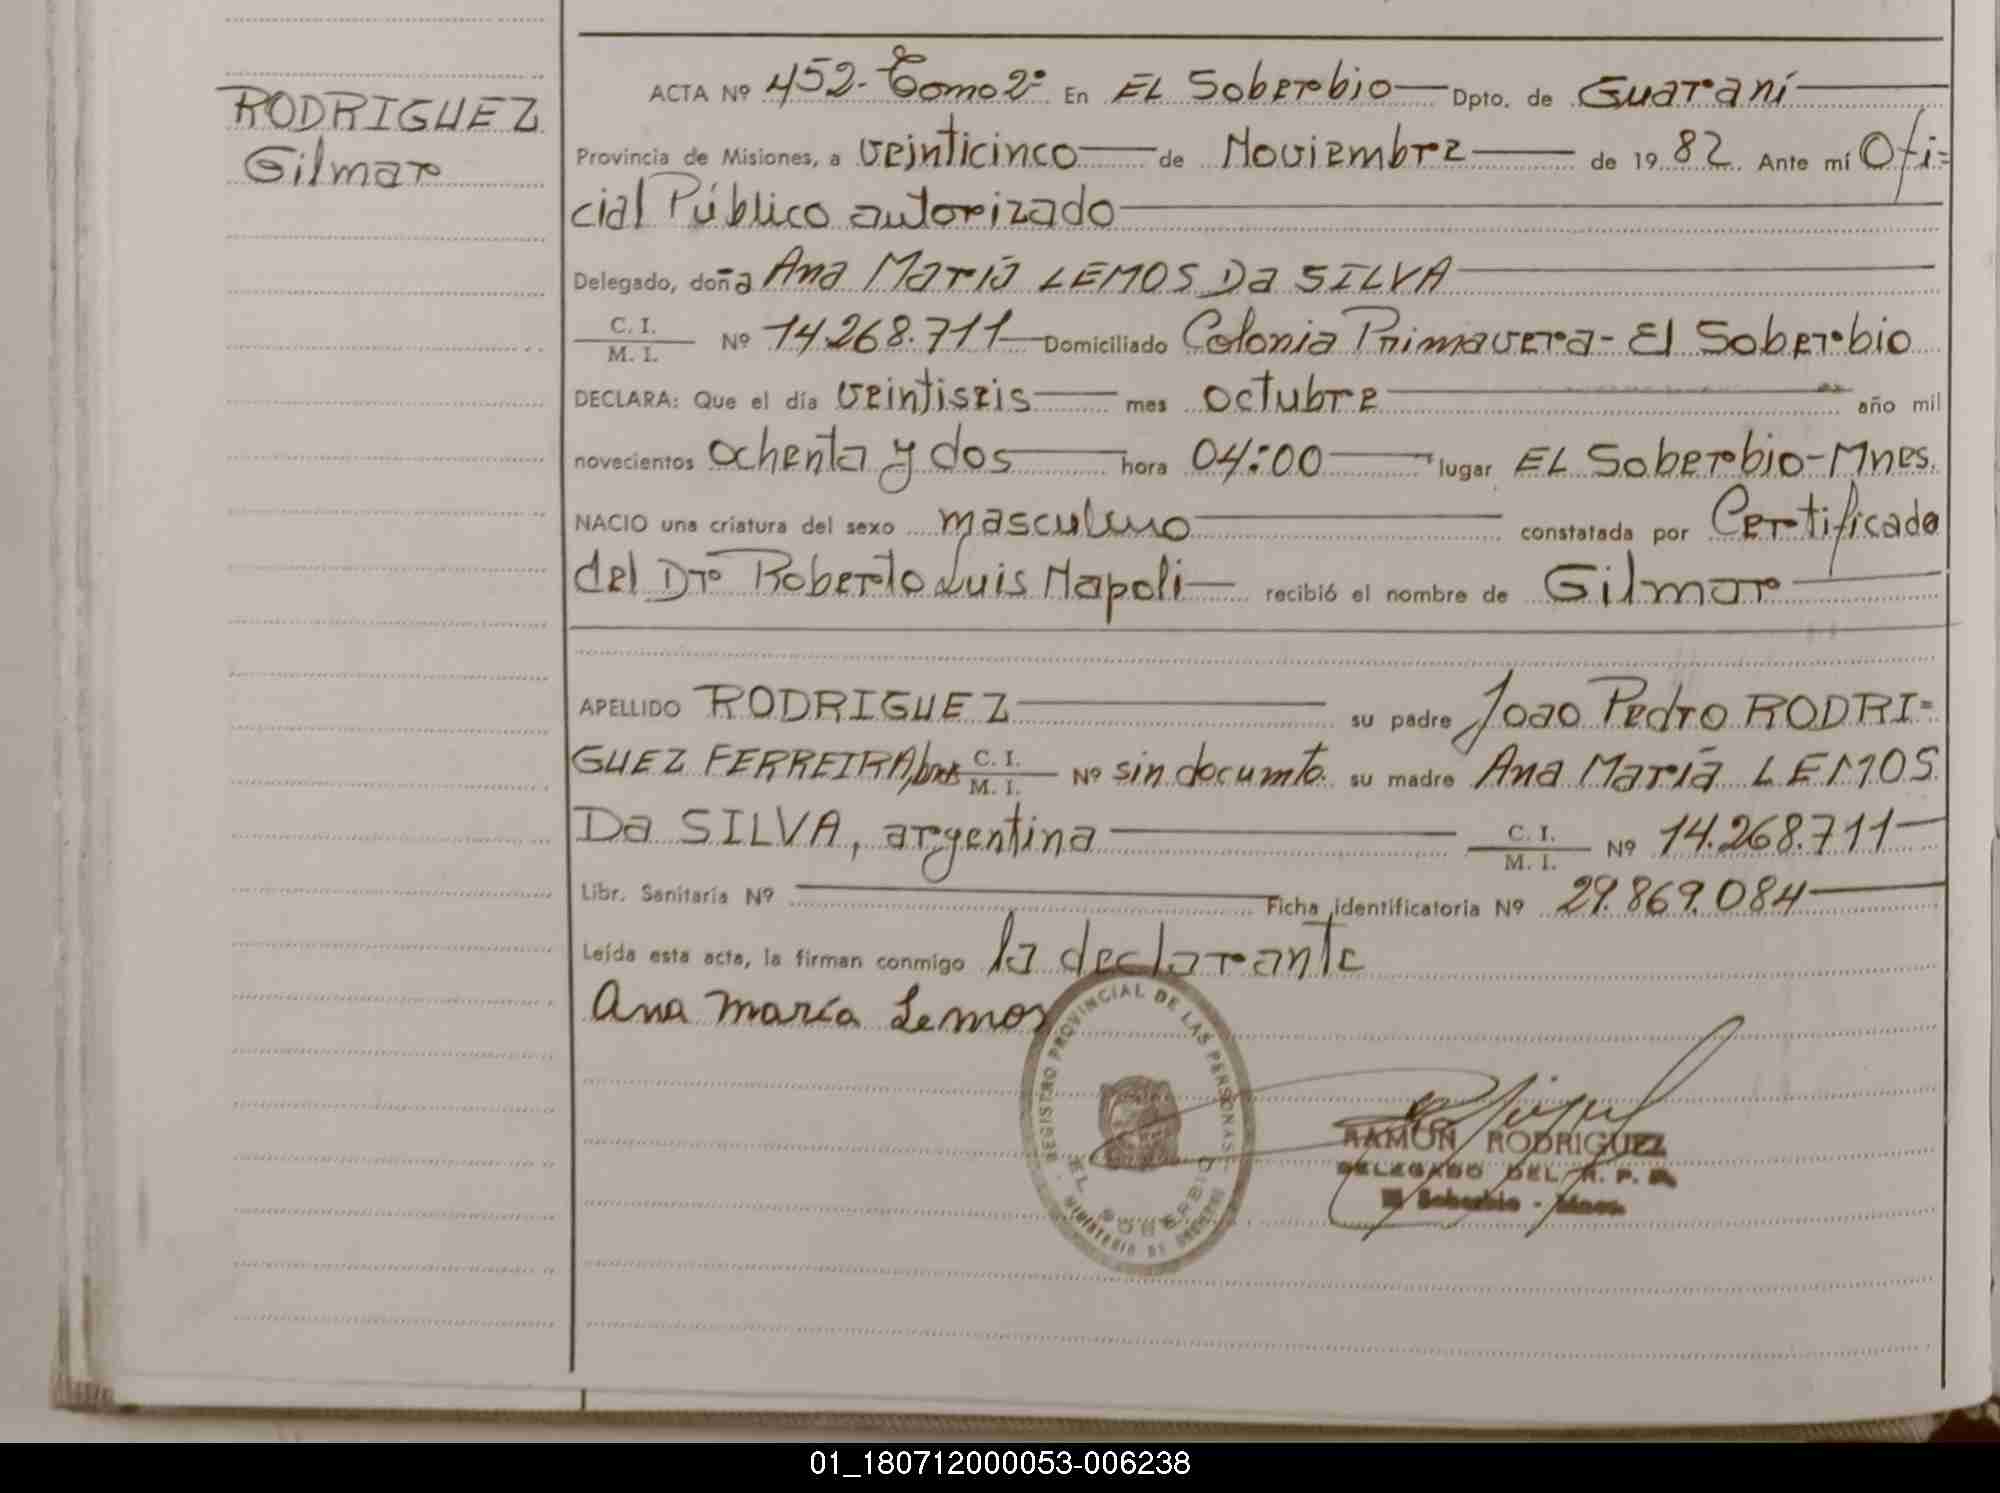 RODRIGUEZ
Gilmar
ACTA Nº 452.- Tomo 2º En EL Soberbio Dpto. de Guaraní
Provincia de Misiones, a veinticinco de Noviembre de 1982. Ante mí Ofi=
cial Público autorizado
Delegado, doña Ana María LEMOS Da SILVA
C. I.
M. I. Nº 14.268.711 Domiciliado Colonia Primavera - El Soberbio
DECLARA: Que el día veintiseis mes octubre año mil
novecientos ochenta y dos hora 04:00 lugar EL Soberbio-Mnes.
NACIO una criatura del sexo masculino constatada por Certificado
del Dr. Roberto Luis Napoli recibió el nombre de Gilmar
APELLIDO RODRIGUEZ su padre Joao Pedro RODRI=
GUEZ FERREIRA, C. I.
M. I. Nº sin documto. su madre Ana María LEMOS
Da SILVA, argentina C. I.
M. I. Nº 14.268.711
Libr. Sanitaria Nº Ficha identificatoria Nº 29.869.084
Leída esta acta, la firman conmigo la declarante
Ana maría Lemos
REGISTRO PROVINCIAL DE LAS PERSONAS
EL SOBERBIO
MINISTERIO DE GOBIERNO
RAMON RODRIGUEZ
DELEGADO DEL R. P. P.
El Soberbio - Mnes.
01_180712000053-006238